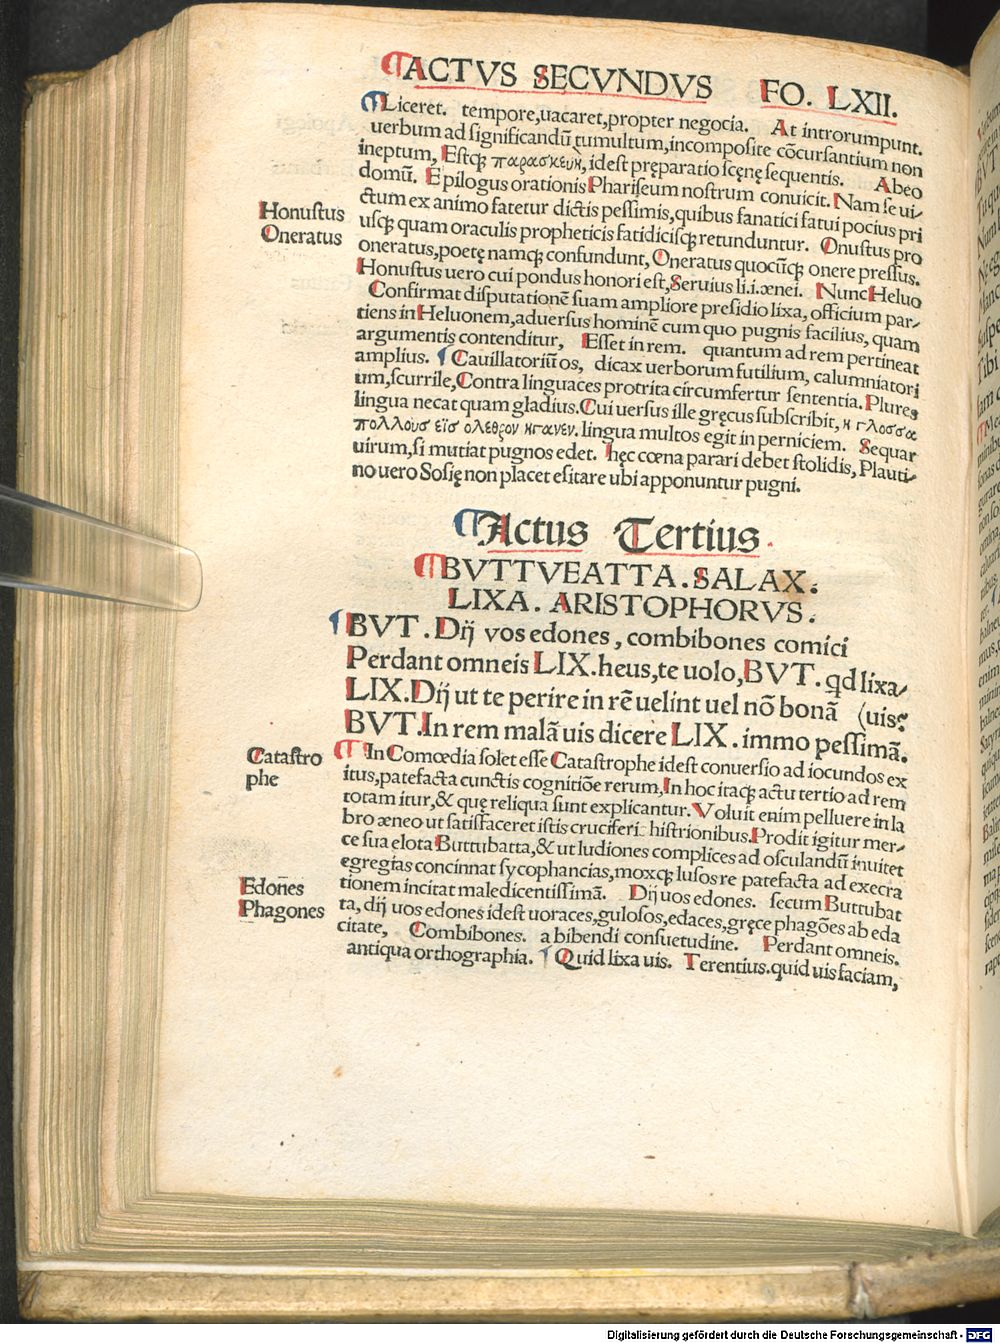 ACTVS SECVNDVS FO. LXII.
Liceret. tempore,uacaret,propter negocia. At introrumpunt.
uerbum ad significandũ tumultum,incomposite cõcursantium non
ineptum, Estqꝫ παρασκευη, idest pręparatio scęnę sequentis. Abeo
domũ. Epilogus orationis Phariseum nostrum conuicit. Nam se ui/
ctum ex animo fatetur dictis pessimis,quibus fanatici fatui pocius pri
usqꝫ quam oraculis propheticis fatidicisqꝫ retunduntur. Onustus pro
Honustus
Oneratus
oneratus,poetę namqꝫ confundunt, Oneratus quocũqꝫ onere pressus.
Honustus uero cui pondus honori est, Seruius li.i.ænei. Nunc Heluo
Confirmat disputationẽ suam ampliore presidio lixa, officium par/
tiens in Heluonem,aduersus hominẽ cum quo pugnis facilius, quam
argumentis contenditur, Esset in rem. quantum ad rem pertineat
amplius. Cauillatoriũ os, dicax uerborum futilium, calumniatori
um,scurrile,Contra linguaces protrita circumfertur sententia. Plures
lingua necat quam gladius.Cui uersus ille gręcus subscribit, η γλοσσα
πολλουσ εἰσ ολεθρον ηγανεν. lingua multos egit in perniciem. Sequar
uirum,si mutiat pugnos edet. hęc cœna parari debet stolidis, Plauti/
no uero Sosię non placet esitare ubi apponuntur pugni.
Actus Tertius.
BVTTVEATTA. SALAX.
LIXA. ARISTOPHORVS.
BVT. Dĳ vos edones, combibones comici
Perdant omneis LIX.heus,te uolo,BVT. qd lixa/
LIX.Dĳ ut te perire in rẽ uelint uel nõ bonã (uis?
BVT.In rem malã uis dicere LIX. immo pessimã.
In Comœdia solet esse Catastrophe idest conuersio ad iocundos ex
Catastro
phe
itus,patefacta cunctis cognitiõe rerum,In hoc itaqꝫ actu tertio ad rem
totam itur,& quę reliqua sunt explicantur. Voluit enim pelluere in la
bro æneo ut satisfaceret istis cruciferi: histrionibus.Prodit igitur mer/
ce sua elota Buttubatta,& ut ludiones complices ad osculandũ inuitet
egregias concinnat sycophancias,moxqꝫ lusos re patefacta ad execra
tionem incitat maledicentissimã. Dĳ uos edones. secum Buttubat
Edon̄es
Phagones
ta, dĳ uos edones idest uoraces,gulosos,edaces,gręce phagões ab eda
citate, Combibones. a bibendi consuetudine. Perdant omneis.
antiqua orthographia. Quid lixa uis. Terentius.quid uis faciam,
Digitalisierung gefördert durch die Deutsche Forschungsgemeinschaft - DFG